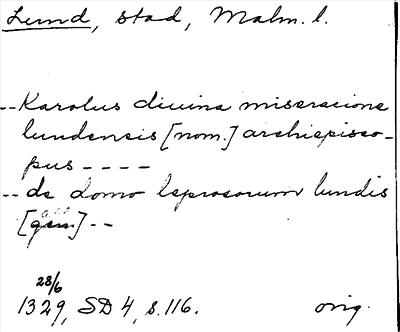 Lund, stad, Malm. l.
--Karolus diuina miseracione
lundensis [nom.] archiepisco-
pus ----
-- de domo leprosorum lundis
[gen.] --
28/6
1329, SD 4, s. 116. orig.